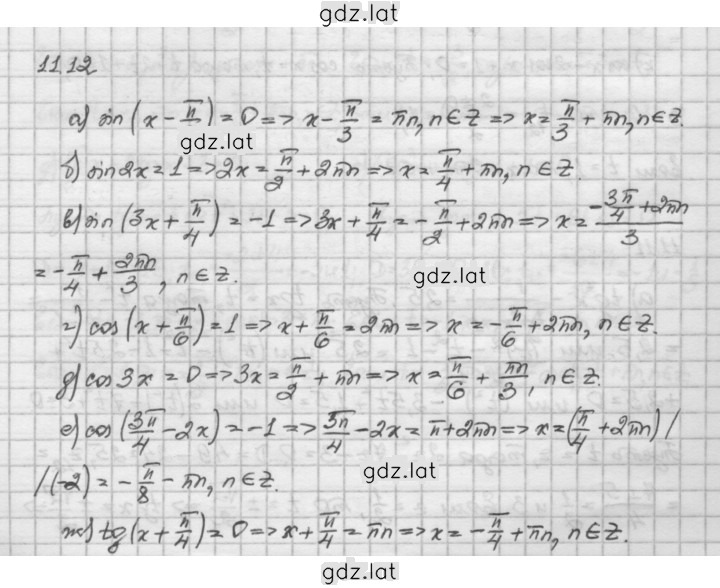 gdz.lat
11.12
а) sin(x - π/3) = 0 => x - π/3 = πn, n∈Z => x = π/3 + πn, n∈Z.
gdz.lat
б) sin2x = 1 => 2x = π/2 + 2πn => x = π/4 + πn, n∈Z.
в) sin(3x + π/4) = -1 => 3x + π/4 = -π/2 + 2πn => x = (-3π/4 + 2πn)/3
= -π/4 + 2πn/3, n∈Z.
gdz.lat
г) cos(x + π/6) = 1 => x + π/6 = 2πn => x = -π/6 + 2πn, n∈Z.
д) cos3x = 0 => 3x = π/2 + πn => x = π/6 + πn/3, n∈Z.
е) cos(3π/4 - 2x) = -1 => 3π/4 - 2x = π + 2πn => x = (π/4 + 2πn) /
/(-2) = -π/8 - πn, n∈Z.
gdz.lat
ж) tg(x + π/4) = 0 => x + π/4 = πn => x = -π/4 + πn, n∈Z.
gdz.lat